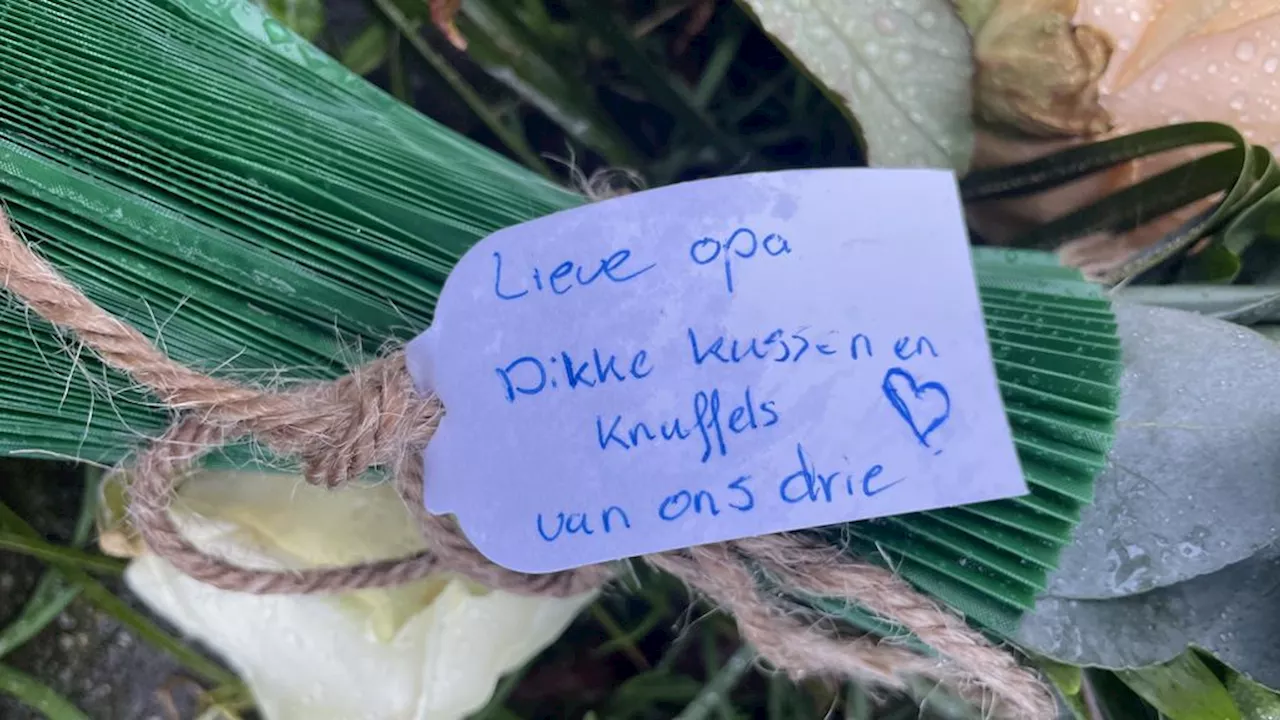 Lieve opa
Dikke kussen en
knuffels
van ons drie